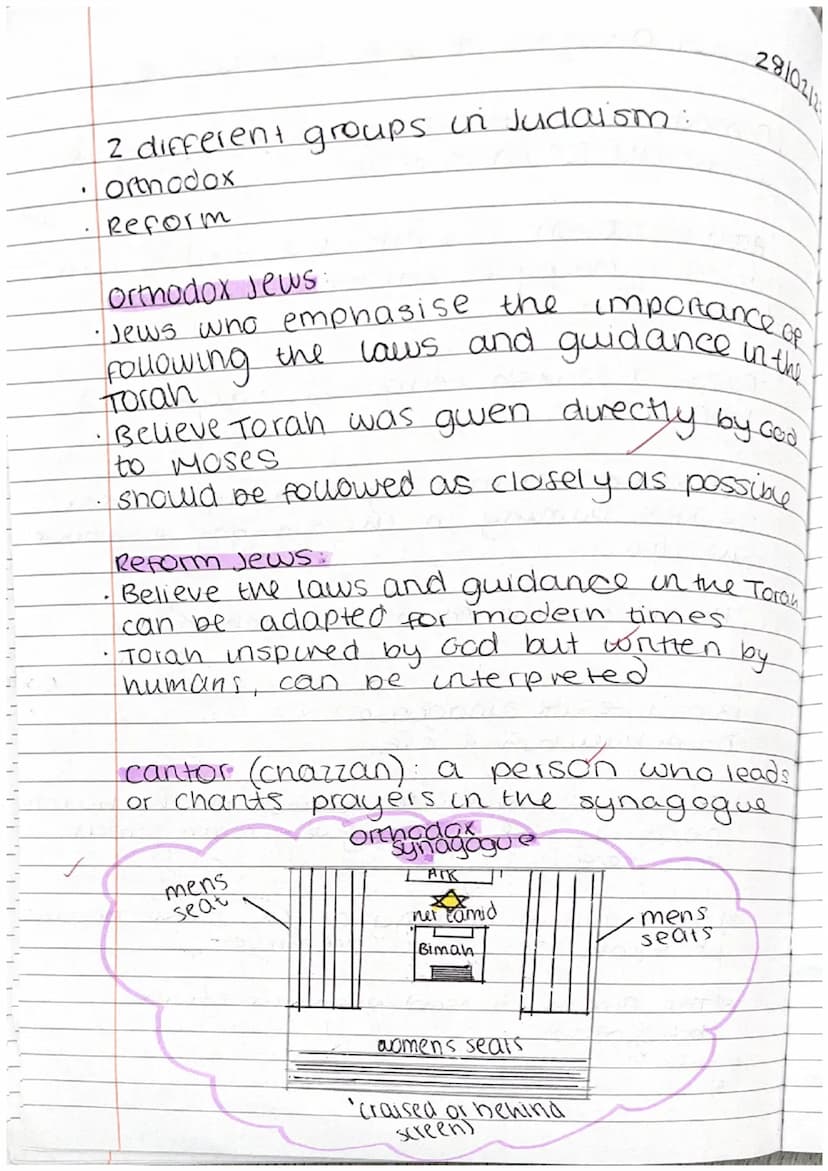 28/02/2
2 different groups in Judaism:
· Orthodox
· Reform
Orthodox Jews:
· Jews who emphasise the importance of
following the laws and guidance in the
Torah
· Believe Torah was given directly by God
to Moses
· should be followed as closely as possible
Reform Jews:
· Believe the laws and guidance in the Torah
can be adapted for modern times
· Torah inspired by God but written by
humans, can be interpreted
cantor (chazzan): a person who leads
or chants prayers in the synagogue
Orthodox
synagogue
mens
seat
Ark
ner tamid
Bimah
mens
seats
womens seats
(raised or behind
screen)